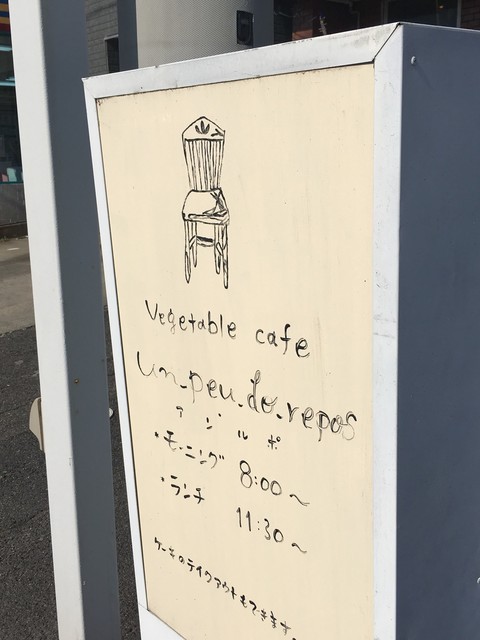 Vegetable cafe
un.peu.do.repos
アジルポ
・モーニング 8:00～
・ランチ 11:30～
ケーキのテイクアウトもできます。